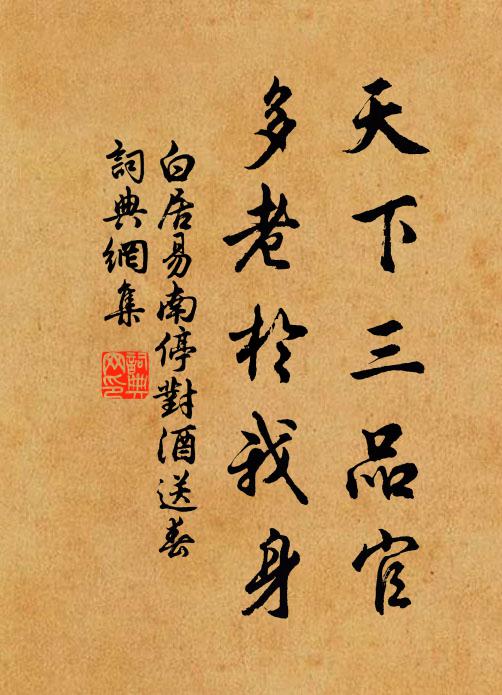 天下三品官
多老於我身
白居易南停對酒送春
詞典網集
詞典
网印